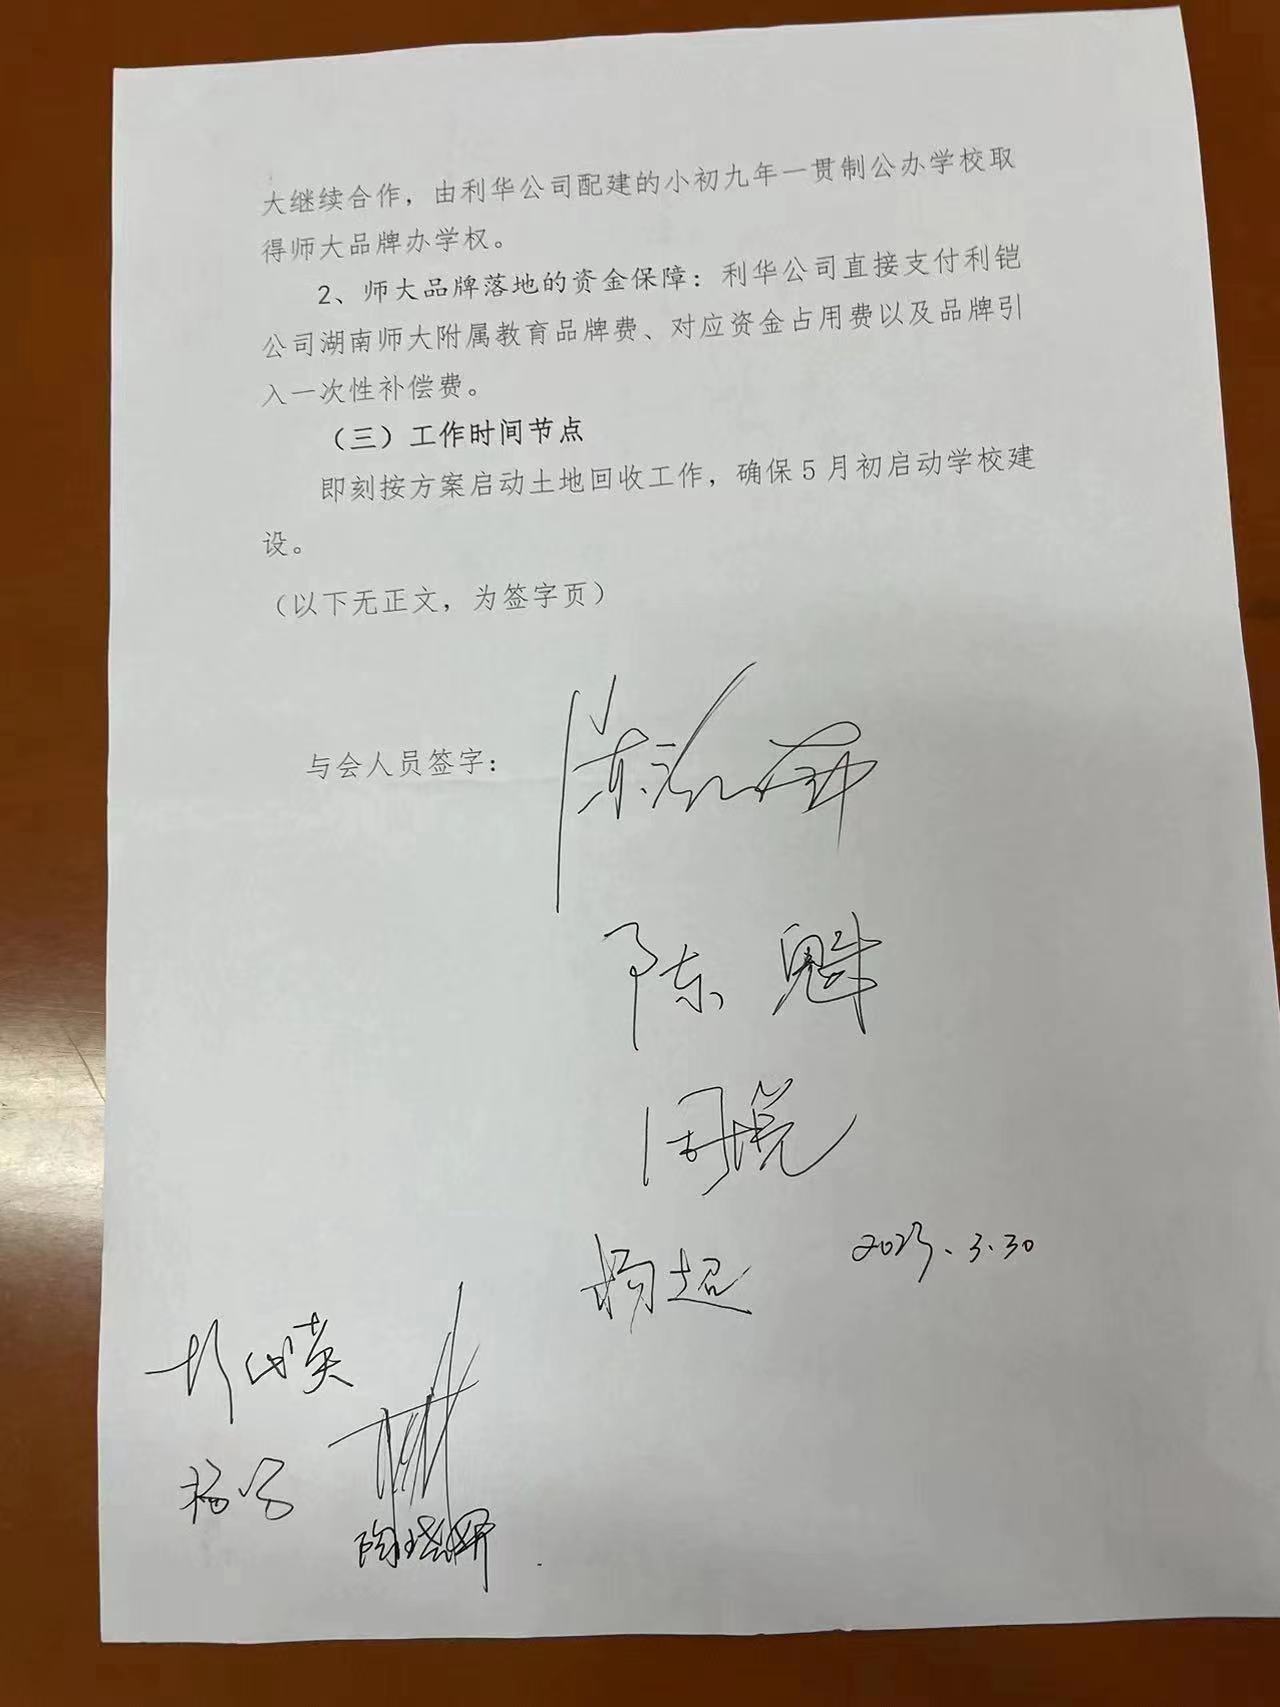 大继续合作，由利华公司配建的小初九年一贯制公办学校取
得师大品牌办学权。
2、师大品牌落地的资金保障：利华公司直接支付利铠
公司湖南师大附属教育品牌费、对应资金占用费以及品牌引
入一次性补偿费。
（三）工作时间节点
即刻按方案启动土地回收工作，确保5月初启动学校建
设。
（以下无正文，为签字页）
与会人员签字：
陈魁
杨超
2023.3.30